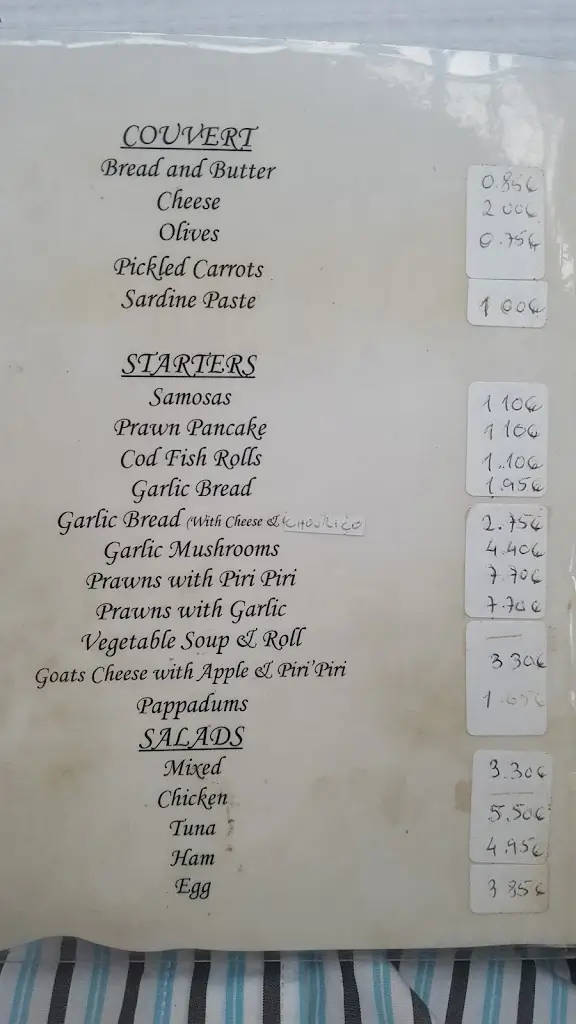 COUVERT
Bread and Butter 0.85€
Cheese 2 00€
Olives 0.75€
Pickled Carrots
Sardine Paste 1 00€
STARTERS
Samosas 1 10€
Prawn Pancake 1 10€
Cod Fish Rolls 1.10€
Garlic Bread 1.95€
Garlic Bread (With Cheese & CHOURIÇO 2.75€
Garlic Mushrooms 4.40€
Prawns with Piri Piri 7.70€
Prawns with Garlic 7.70€
Vegetable Soup & Roll —
Goats Cheese with Apple & Piri'Piri 3 30€
Pappadums
SALADS
Mixed 3.30€
Chicken —
Tuna 5.50€
Ham 4.95€
Egg 3 85€